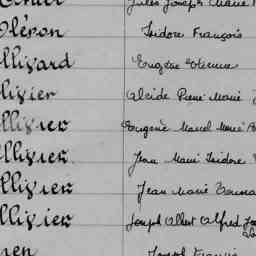 Jules Joseph Marie
Oléron Isidore François
lligard Eugène Etienne
livier Alcide Pierre Marie J
llivier Eugène Marcel Marie
llivier Jean Marie Isidore
llivier Jean Marie
llivier Joseph Albert Alfred
Joseph Francis